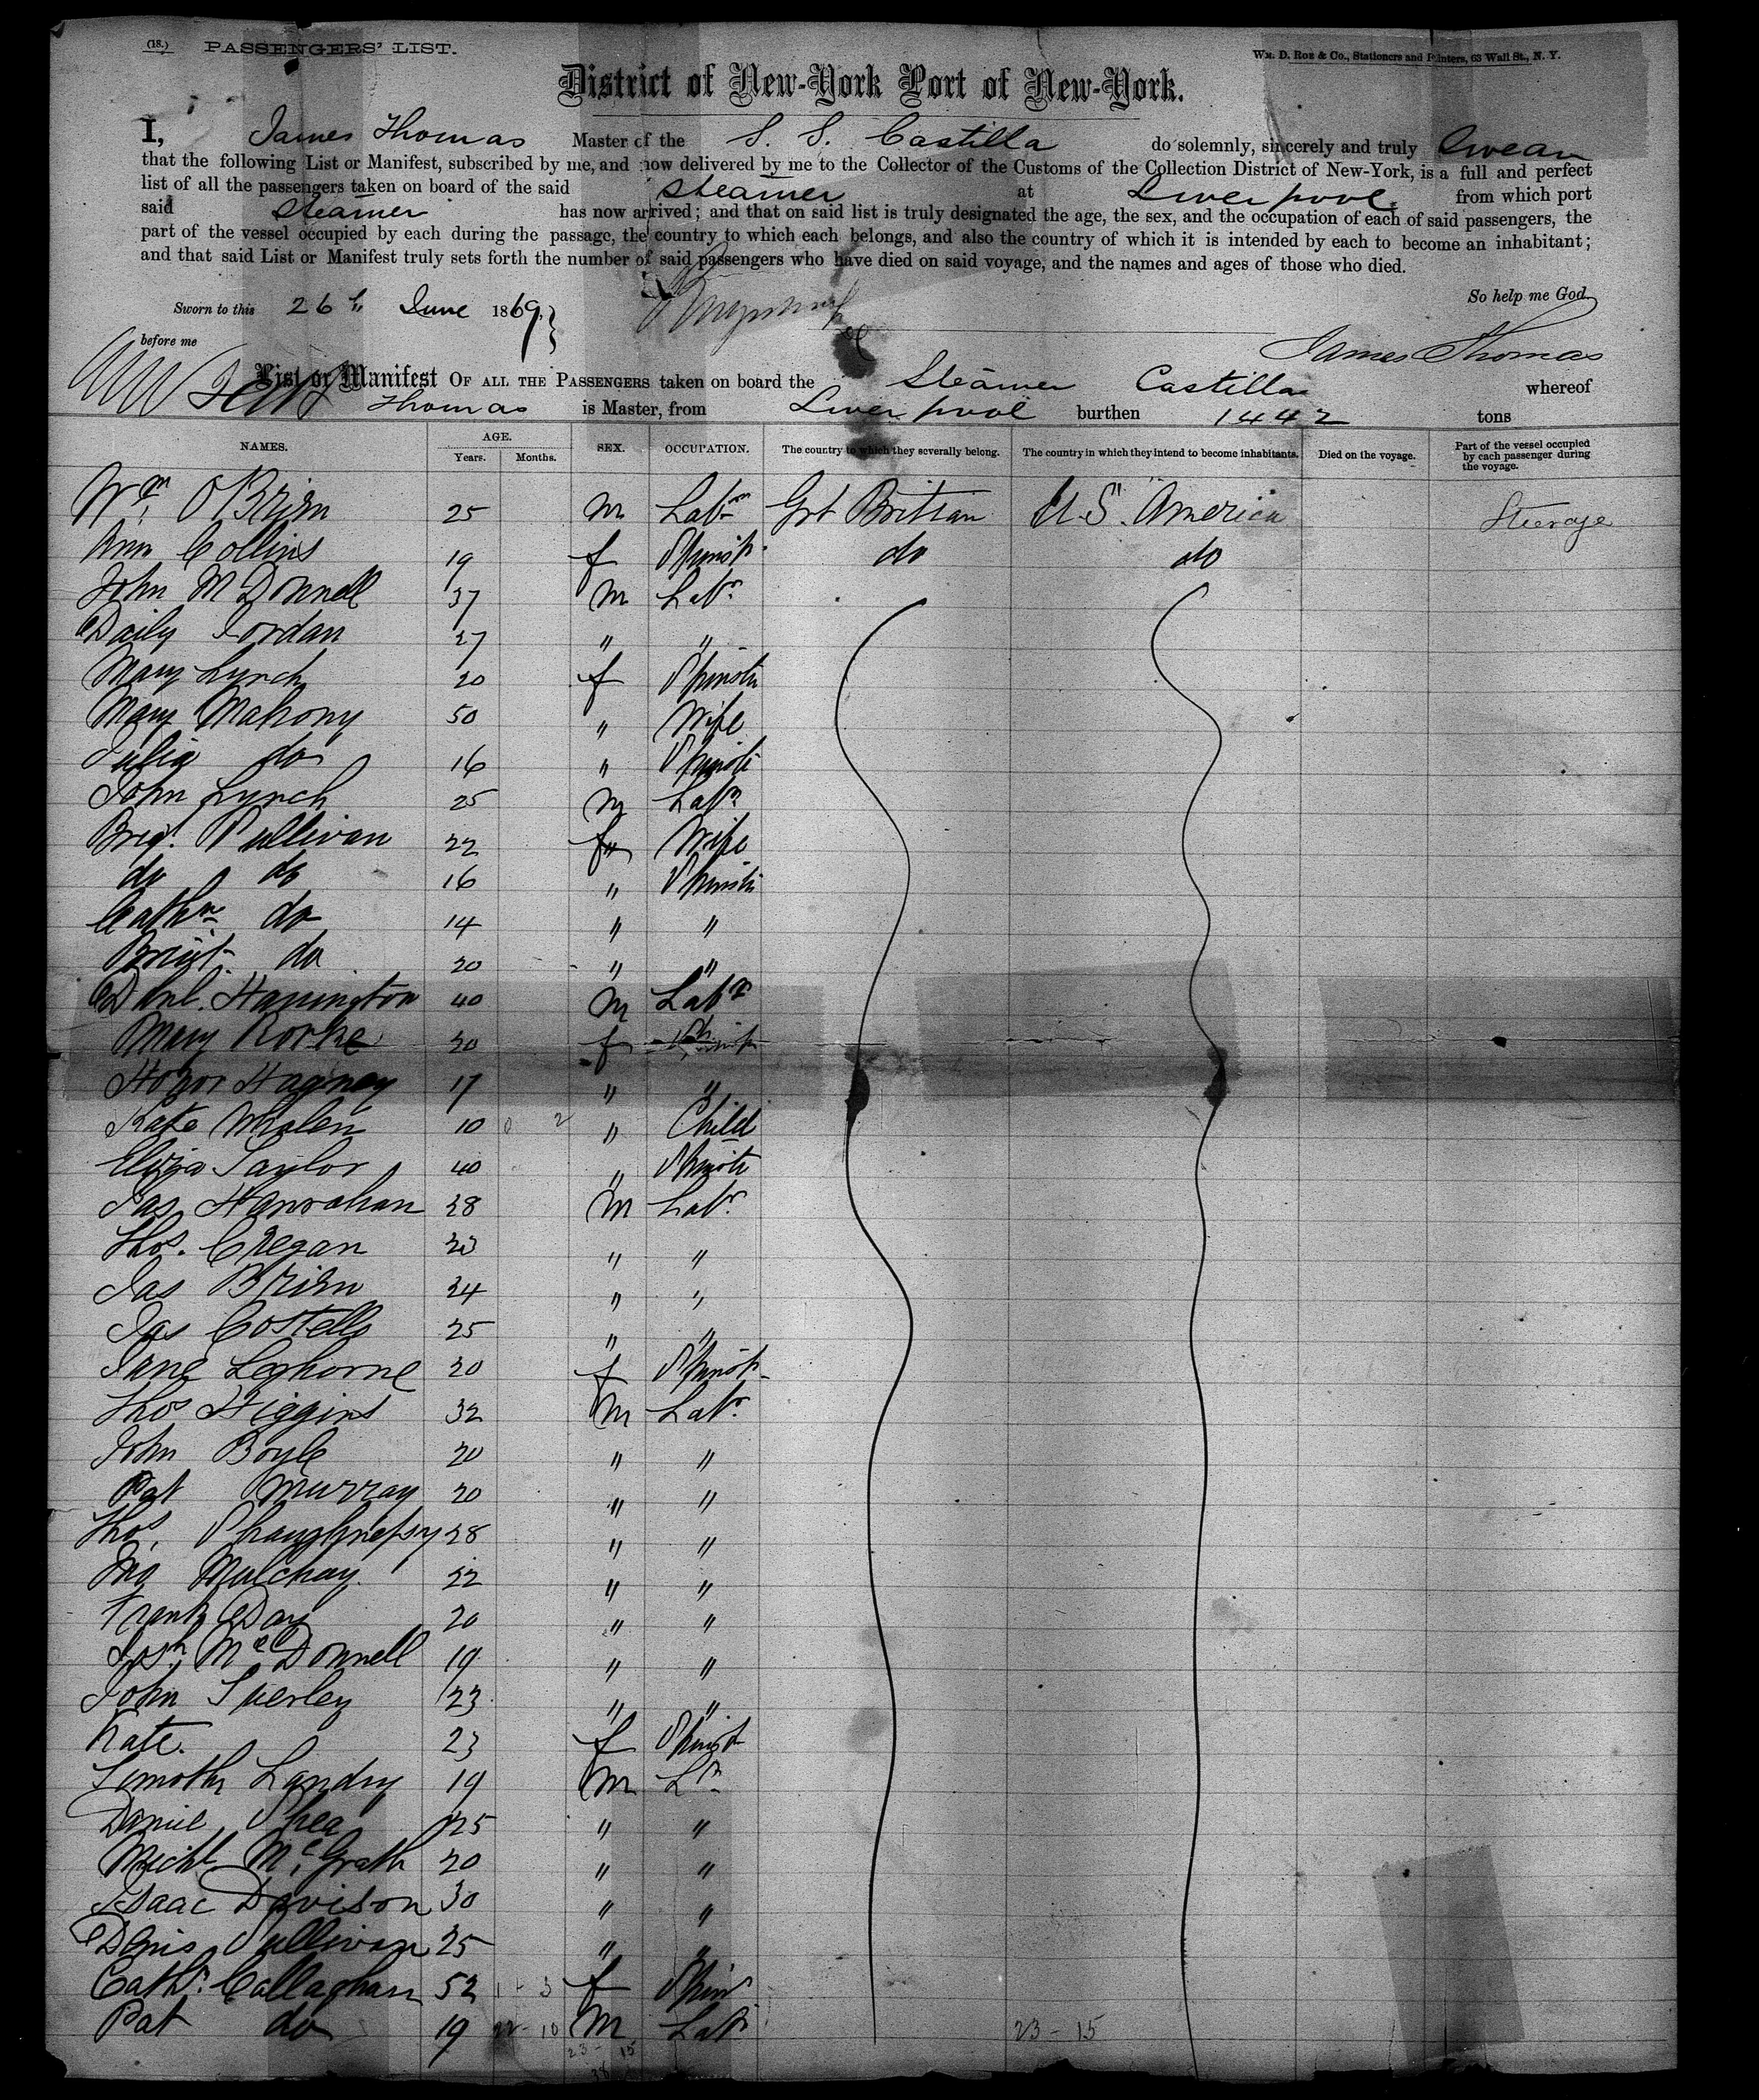 (18.) PASSENGERS' LIST. Wm. D. Roe & Co., Stationers and Printers, 63 Wall St., N. Y.
District of New-York Port of New-York.
I, James Thomas Master of the S. S. Castilla do solemnly, sincerely and truly Swear
that the following List or Manifest, subscribed by me, and now delivered by me to the Collector of the Customs of the Collection District of New-York, is a full and perfect
list of all the passengers taken on board of the said Steamer at Liverpool from which port
said Steamer has now arrived; and that on said list is truly designated the age, the sex, and the occupation of each of said passengers, the
part of the vessel occupied by each during the passage, the country to which each belongs, and also the country of which it is intended by each to become an inhabitant;
and that said List or Manifest truly sets forth the number of said passengers who have died on said voyage, and the names and ages of those who died.
So help me God
Sworn to this 26th June 1869
before me James Thomas
List or Manifest OF ALL THE PASSENGERS taken on board the Steamer Castilla whereof
Thomas is Master, from Liverpool burthen 1442 tons
NAMES. AGE. Years. Months. SEX. OCCUPATION. The country to which they severally belong. The country in which they intend to become inhabitants. Died on the voyage. Part of the vessel occupied by each passenger during the voyage.
Wm. O Brien 25 m Labr Grt Brittian U.S. America Steerage
Ann Collins 19 f Spinstr do do
John McDonnell 37 m Labr
Daily Jordan 27 " "
Mary Lynch 20 f Spinstr
Mary Mahony 50 " Wife
Julia do 16 " Spinstr
John Lynch 25 m Labr
Brig. Sullivan 22 f Wife
do do 16 " Spinstr
Cathn do 14 " "
Bridgt do 20 " "
Danl. Harrington 40 m Labr
Mary Rorke 20 f Spinstr
Honor Hagney 17 " "
Kate Whalen 10 " Child
Eliza Taylor 40 " Spinstr
Jas Hanrahan 28 m Labr
Thos. Cregan 23 " "
Jas Brien 24 " "
Jas Costello 25 " "
Jane Leghorne 20 f Spinstr
Thos Higgins 32 m Labr
John Boyle 20 " "
Pat Murray 20 " "
Thos. Shaughnessy 28 " "
Jno Mulchay 22 " "
Frank Day 20 " "
Josh McDonnell 19 " "
John Tuerley 23 " "
Kate. 23 f Spinst
Timothy Landry 19 m Lr
Daniel Shea 25 " "
Michl McGrath 20 " "
Isaac Davison 30 " "
Denis Sullivan 25 " "
Cathn Callaghan 52 f Spin
Pat do 19 m Labr
23 - 15 23 - 15
38